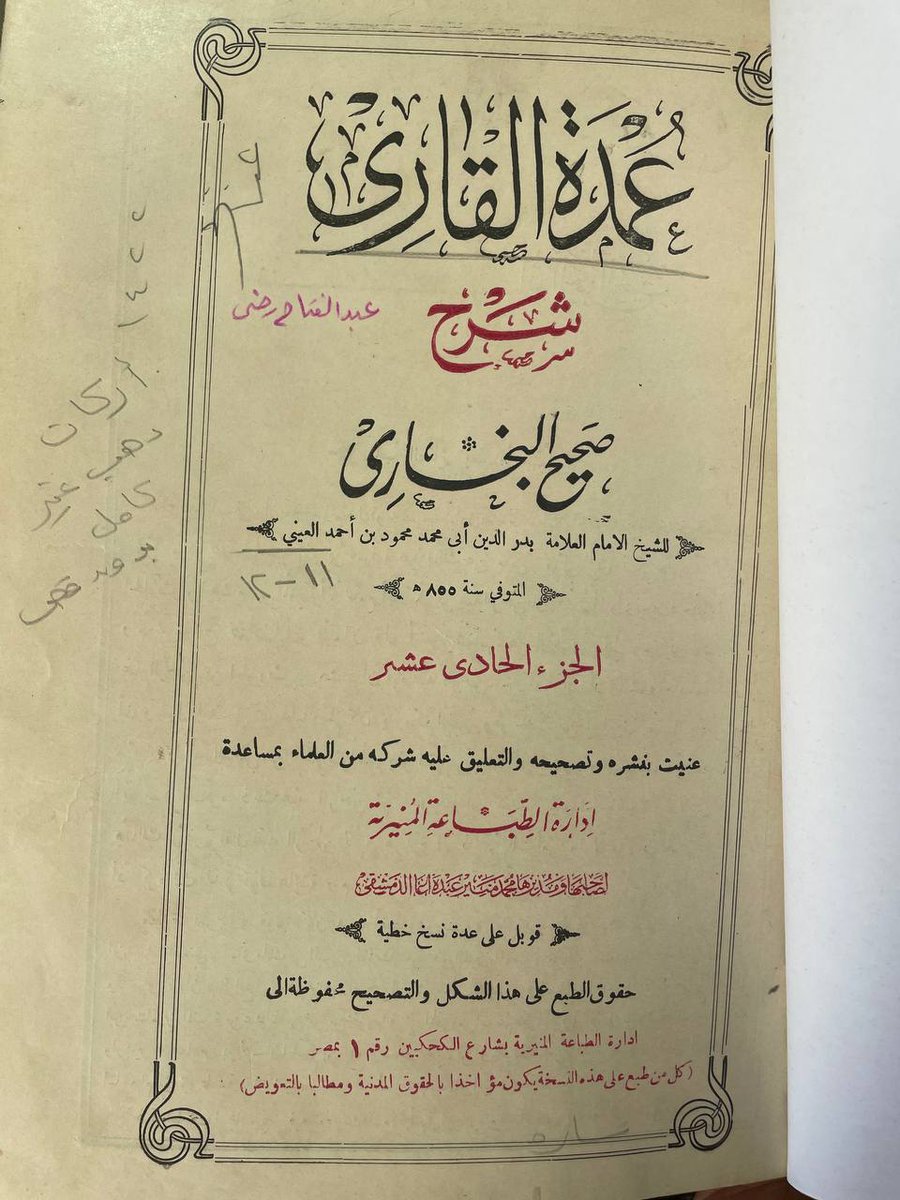 عُمْدَةُ القَارِي
شَرْح
صَحيح البُخَارِي
عبدالفتاح رضى
للشيخ الامام العلامة بدر الدين أبى محمد محمود بن أحمد العيني
١١-١٢
المتوفي سنة ٨٥٥ ه
الجزء الحادى عشر
عنيت بنشره وتصحيحه والتعليق عليه شركه من العلماء بمساعدة
إدَارَة الطِّبَاعَةِ المُنِيرِيَّة
لصاحبها ومديرها محمد منير عبده أغا الدمشقى
قوبل على عدة نسخ خطية
حقوق الطبع على هذا الشكل والتصحيح محفوظة الى
ادارة الطباعة المنيرية بشارع الكحكيين رقم ١ بمصر
(كل من طبع على هذه النسخة يكون مؤاخذا بالحقوق المدنية ومطالبا بالتعويض)
١٤٢٢
كامل